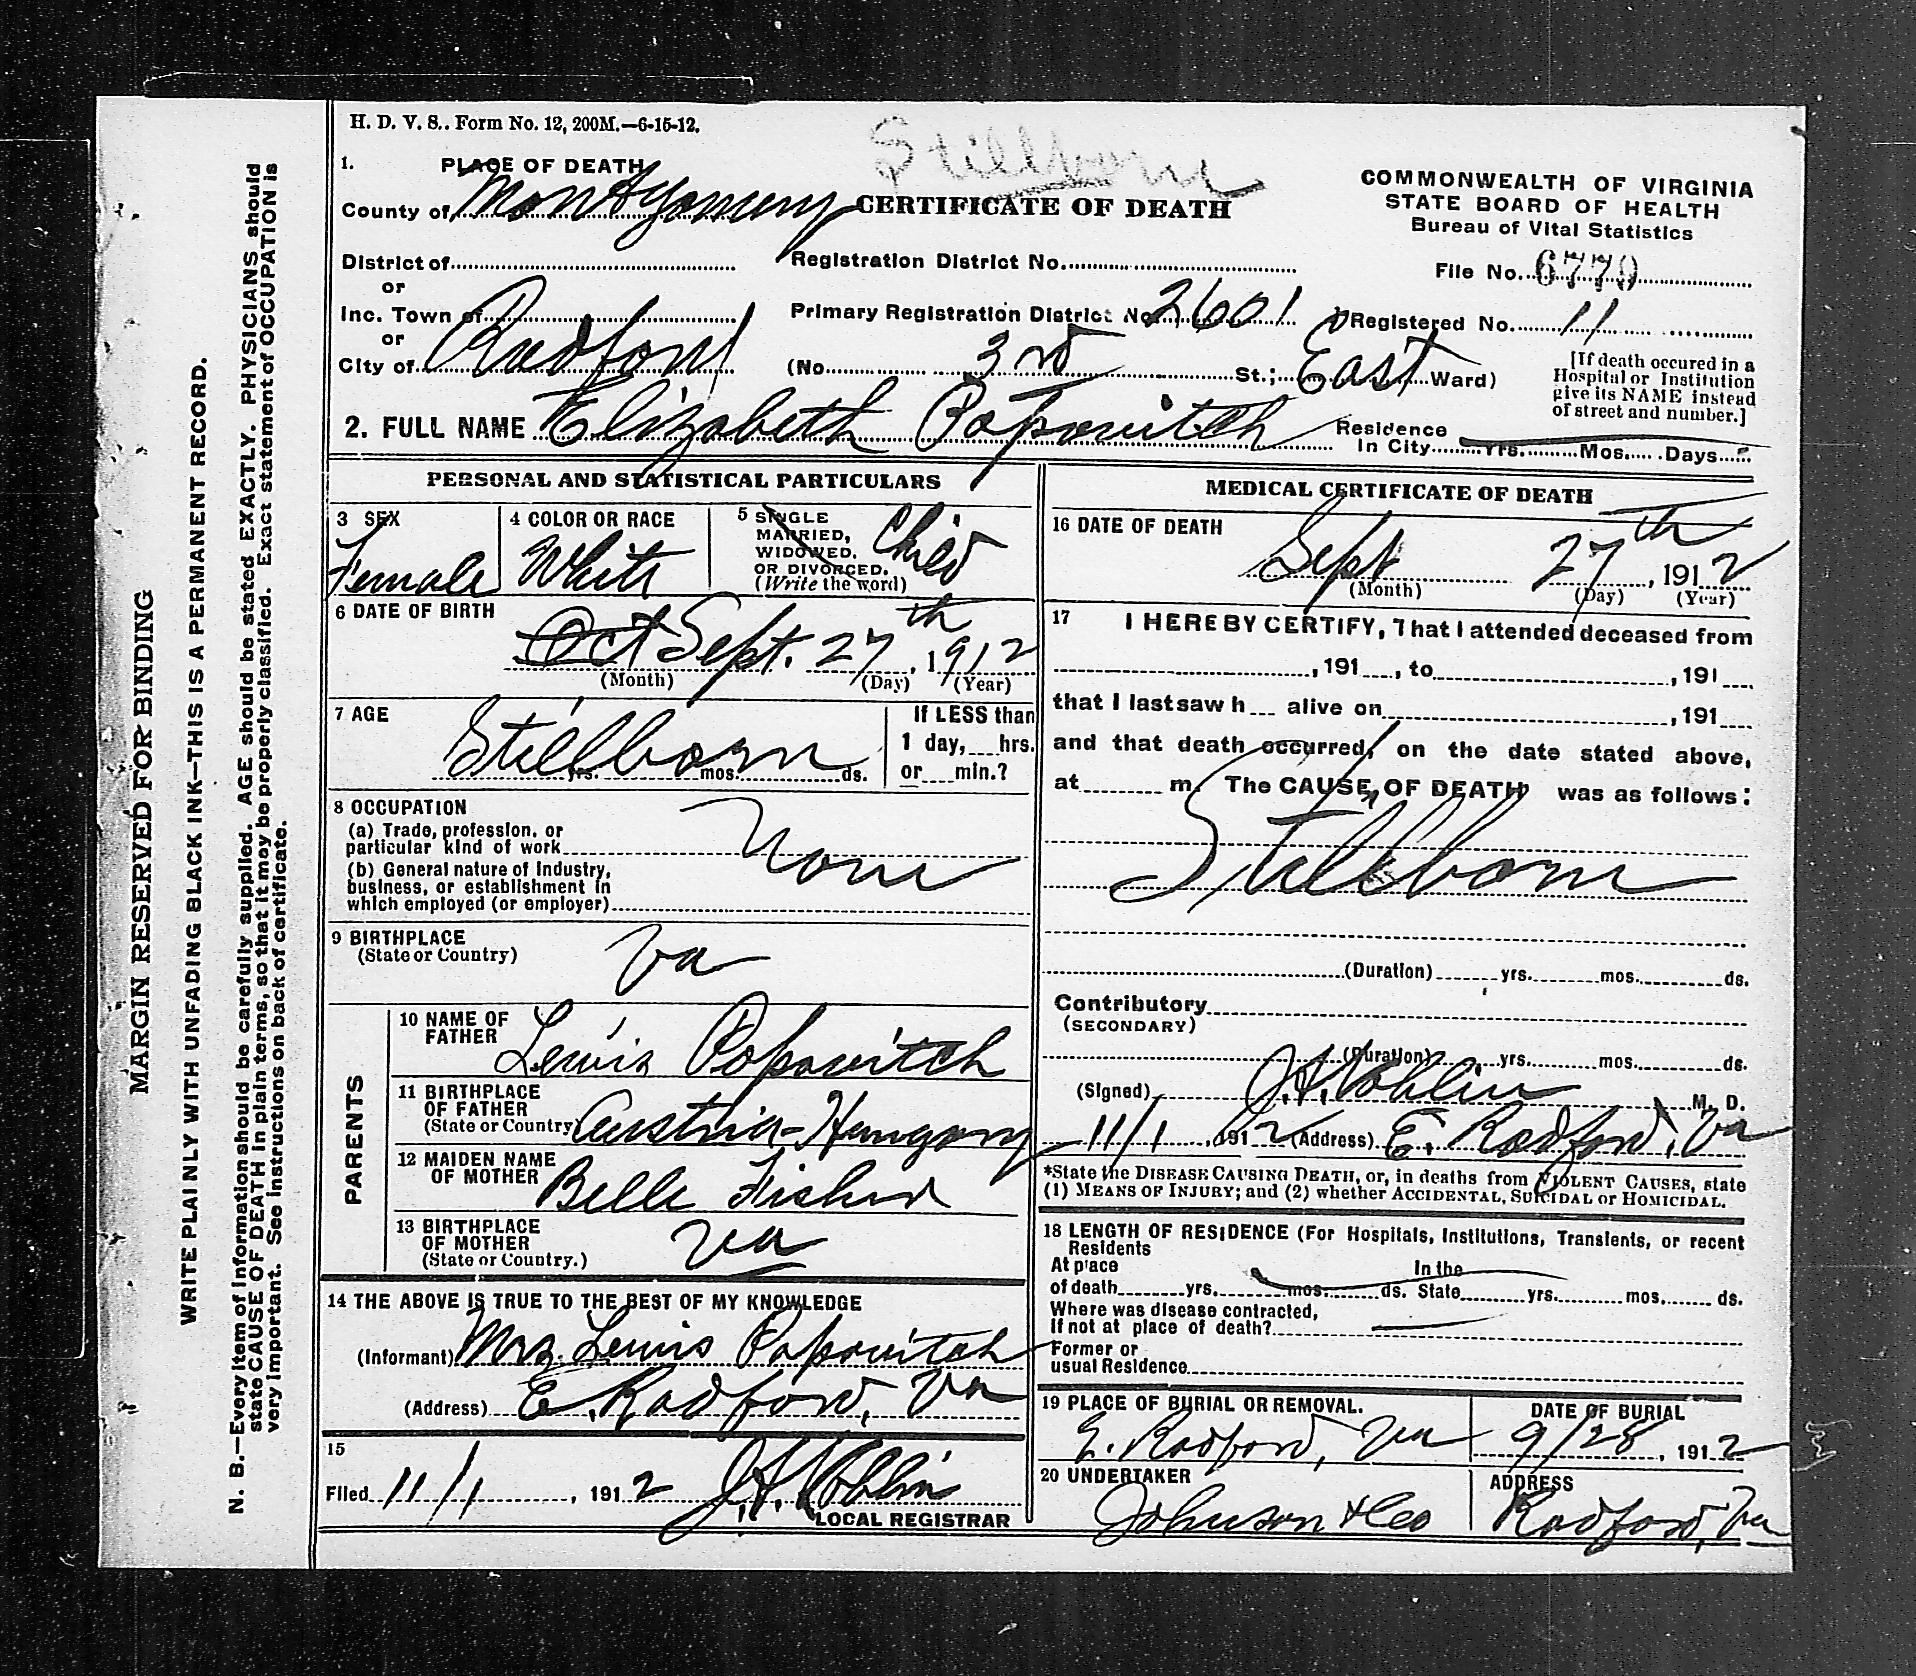 H. D. V. S.. Form No. 12, 200M.—6-15-12.
Stillborn
1. PLACE OF DEATH
County of Montgomery
CERTIFICATE OF DEATH
COMMONWEALTH OF VIRGINIA
STATE BOARD OF HEALTH
Bureau of Vital Statistics
District of
Registration District No.
File No. 6770
or
Inc. Town of
Primary Registration District No. 2601
Registered No. 11
or
City of Radford
(No. 3rd St.; East Ward)
[If death occured in a
Hospital or Institution
give its NAME instead
of street and number.]
2. FULL NAME Elizabeth Popovitch
Residence
In City Yrs. Mos. Days
PERSONAL AND STATISTICAL PARTICULARS
3 SEX
Female
4 COLOR OR RACE
White
5 SINGLE
MARRIED,
WIDOWED.
OR DIVORCED.
(Write the word)
Child
6 DATE OF BIRTH
Oct Sept. 27th, 1912
(Month) (Day) (Year)
7 AGE
Stillborn
yrs. mos. ds.
If LESS than
1 day, hrs.
or min.?
8 OCCUPATION
(a) Trade, profession, or
particular kind of work
None
(b) General nature of Industry,
business, or establishment in
which employed (or employer)
9 BIRTHPLACE
(State or Country)
Va
PARENTS
10 NAME OF
FATHER
Lewis Popovitch
11 BIRTHPLACE
OF FATHER
(State or Country)
Austria-Hungary
12 MAIDEN NAME
OF MOTHER
Belle Fisher
13 BIRTHPLACE
OF MOTHER
(State or Country.)
Va
14 THE ABOVE IS TRUE TO THE BEST OF MY KNOWLEDGE
(Informant) Mrs. Lewis Popovitch
(Address) E. Radford, Va
15
Filed 11/1, 1912 J.H.
LOCAL REGISTRAR
MEDICAL CERTIFICATE OF DEATH
16 DATE OF DEATH
Sept 27th, 1912
(Month) (Day) (Year)
17 I HEREBY CERTIFY, That I attended deceased from
, 191 , to , 191
that I last saw h alive on , 191
and that death occurred, on the date stated above,
at m. The CAUSE OF DEATH was as follows:
Stillborn
(Duration) yrs. mos. ds.
Contributory
(SECONDARY)
(Duration) yrs. mos. ds.
(Signed) J.H. M. D.
11/1, 1912 (Address) E. Radford, Va
*State the DISEASE CAUSING DEATH, or, in deaths from VIOLENT CAUSES, state
(1) MEANS OF INJURY; and (2) whether ACCIDENTAL, SUICIDAL or HOMICIDAL.
18 LENGTH OF RESIDENCE (For Hospitals, Institutions, Transients, or recent
Residents
At place In the
of death yrs. mos. ds. State yrs. mos. ds.
Where was disease contracted,
If not at place of death?
Former or
usual Residence
19 PLACE OF BURIAL OR REMOVAL.
E. Radford, Va
DATE OF BURIAL
9/28, 1912
20 UNDERTAKER
Johnson & Co
ADDRESS
Radford, Va
MARGIN RESERVED FOR BINDING
WRITE PLAINLY WITH UNFADING BLACK INK—THIS IS A PERMANENT RECORD.
N. B.—Every item of information should be carefully supplied. AGE should be stated EXACTLY. PHYSICIANS should
state CAUSE OF DEATH in plain terms, so that it may be properly classified. Exact statement of OCCUPATION is
very important. See instructions on back of certificate.